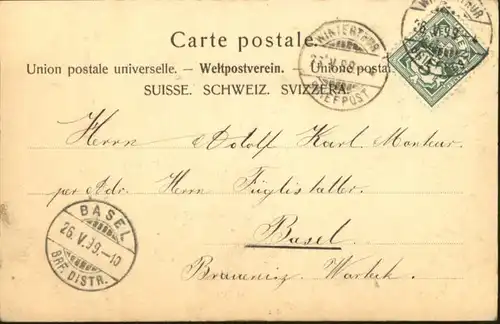 Carte postale.
Union postale universelle. — Weltpostverein. — Unione posta
SUISSE. SCHWEIZ. SVIZZERA.
WINTERTHUR
V.99
BRIEFPOST
WINTERTHUR
V.99
Herrn Adolf Karl. Monteur
per Adr. Herrn Füglistaller.
Basel.
BASEL
26.V.99.-10
BRF. DISTR.